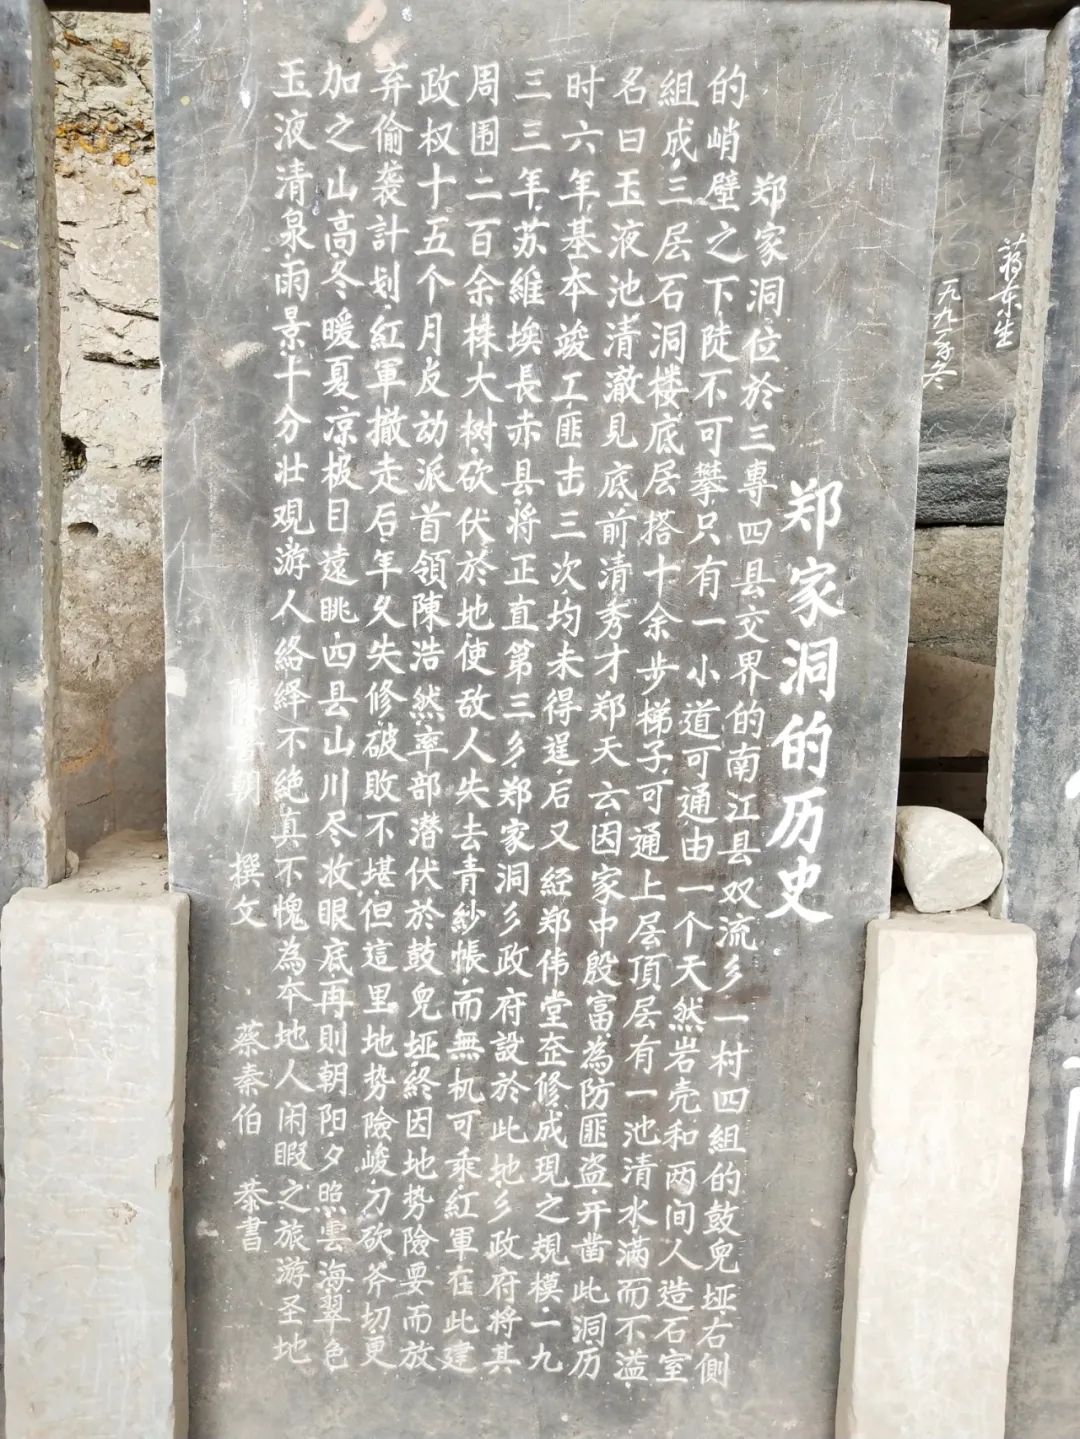 郑家洞的历史
郑家洞位於三專四县交界的南江县双流乡一村四组的鼓兒垭右側
的峭壁之下陡不可攀只有一小道可通由一个天然岩壳和两间人造石室
组成,三层石洞楼底层搭十余步梯子,可通上层顶层有一池清水满而不溢,
名曰玉液池清澈见底前清秀才郑天云,因家中殷富,為防匪盗,开凿此洞,历
时六年,基本竣工,匪击三次,均未得逞,后又经郑伟堂叠修成现之规模,一九
三三年,苏維埃長赤县将正直第三乡郑家洞乡政府設於此地,乡政府将其
周围二百余株大树,砍伏於地使敌人失去青紗帳,而無机可乘,紅軍在此建
政权十五个月反动派首领陳浩然,率部潜伏於鼓兒垭,終因地势險要而放
弃偷袭計划,紅軍撤走后年久失修,破败不堪,但這里地势險峻,刀砍斧切,更
加之山高,冬暖夏凉,极目遠眺,四县山川尽收眼底,再則朝阳夕照雲海翠色
玉液清泉,雨景,十分壮观,游人络绎不绝,真不愧為本地人闲暇之旅游圣地
朝 撰文 蔡秦伯 恭書
蒋东生
一九九一年冬